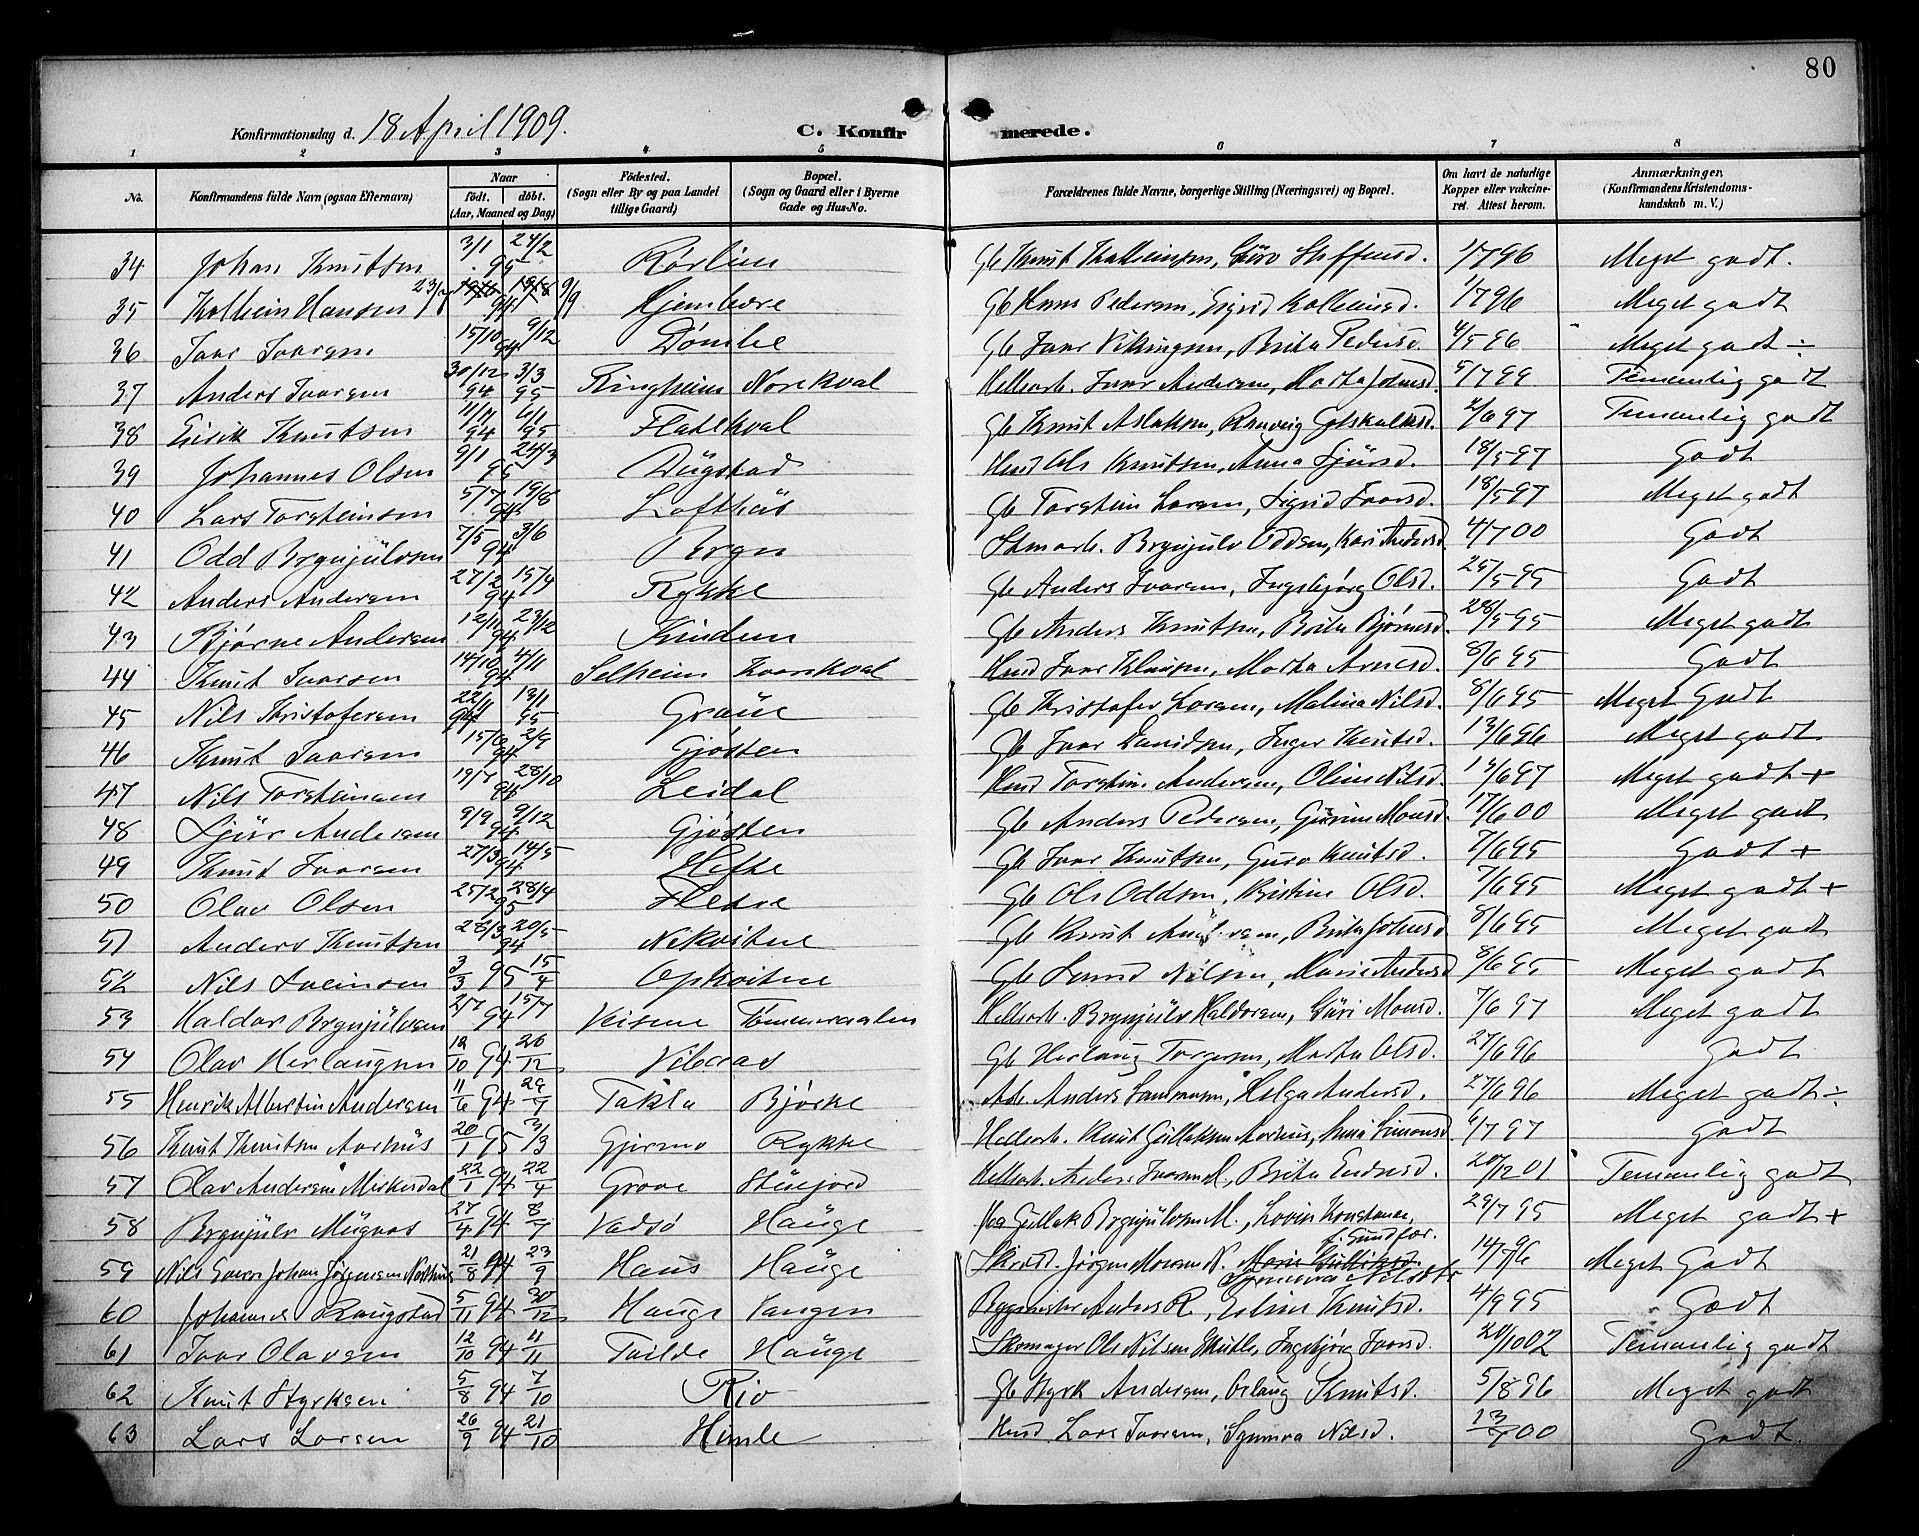 80
Konfirmationsdag d. 18 April 1909.
C. Konfirmerede.
1 2 3 4 5 6 7 8
No. Konfirmandens fulde Navn (ogsaa Efternavn) Naar født. døbt. (Aar, Maaned og Dag) Fødested. (Sogn eller By og paa Landet tillige Gaard) Bopæl. (Sogn og Gaard eller i Byerne Gade og Hus-No. Forældrenes fulde Navne, borgerlige Stilling (Næringsvei) og Bopæl. Om havt de naturlige Kopper eller vakcineret. Attest herom. Anmærkninger, (Konfirmandens Kristendomskundskab m. V.)
34 Johan Knutsen 3/1 24/2 95 Rørlien Gb Knut Kolbeinsen, Guro Steffensd. 1/7 96 Meget godt.
35 Kolbein Hansen 23/7 94 9/9 Gb Hans Pedersen, Sigrid Kolbeinsd. 1/7 96 Meget godt
36 Ivar Ivarsen 15/10 9/12 94 Dømbe Gb Ivar Vikingsen, Brita Pedersd. 4/5 96 Meget godt ÷
37 Anders Ivarsen 30/12 94 3/3 95 Ringheim Norekval Ivar Andersen, Marta Johnsd. 5/7 99 Temanlig godt
38 Eirik Knutsen 11/11 94 6/1 95 Flatekval Gb Knut Aslaksen, Ranveig Gotskalksd. 2/6 97 Temanlig godt
39 Johannes Olsen 9/1 24/3 95 Dugstad Husd Ole Knutsen, Anna Sjursd. 18/5 97 Godt
40 Lars Torsteinsen 5/7 19/8 94 Lofthus Gb Torstein Larsen, Sigrid Ivarsd. 18/5 97 Meget godt
41 Odd Brynjulvsen 7/5 3/6 94 Brynjulv Oddsen, Kari Andersd. 4/7 00 Godt
42 Anders Andersen 27/2 15/4 94 Rykke Gb Anders Ivarsen, Ingebjørg Olsd. 25/5 95 Godt
43 Bjørne Andersen 12/11 23/12 94 Kinden Gb Anders Knutsen, Brita Bjørnsd. 28/5 95 Meget godt
44 Knut Ivarsen 14/10 4/11 94 Selheim Husd Ivar Klausen, Marta Arnesd. 8/6 95 Godt
45 Nils Kristofersen 22/11 94 13/1 95 Graue Gb Kristofer Larsen, Malina Nilsd. 8/6 95 Meget Godt
46 Knut Ivarsen 2/9 94 Gjøsten Gb Ivar Davidsen, Inger Knutsd. 13/6 96 Meget godt
47 Nils Torsteinsen 28/10 94 Leidal Husd Torstein Andersen, Oline Nilsd. Meget godt +
48 Sjur Andersen 9/9 9/12 94 Gjøsten Gb Anders Pedersen, Monsd. 17/6 00 Meget godt
49 Knut Ivarsen 27/3 14/5 94 Hefte Gb Ivar Knutsen, Guro Knutsd. 7/6 95 Godt +
50 Olav Olsen 25/2 28/4 95 Flette Gb Ole Oddsen, Kristine Olsd. 7/6 95 Meget godt +
51 Anders Knutsen 28/3 20/5 94 Nekvitne Gb Knut Brita Johnsd 8/6 95 Meget godt
52 Nils Sveinsen 3/3 95 15/4 Opkvitne Gb Nilsen, Marie Andersd 8/6 95 Meget godt
53 Haldor Brynjulvsen 2/7 94 15/7 Brynjulv Haldorsen, Guri Monsd. 7/6 97 Meget godt
54 Olav Herlaugsen 12/10 94 26/12 Gb Herlaug Torgersen, Marta Olsd. 27/6 96 Godt
55 Henrik Albertin Andersen 11/6 94 29/7 Takla Bjørke Anders Helga Andersd. 27/6 96 Meget godt ÷
56 Knut Knutsen Aarhus 20/1 95 3/3 Gjermo Rykke Knut Gullaksen Aarhus, Anna Simonsd 6/7 97 Godt
57 Olav Andersen Mirkesdal 22/1 94 22/4 Grove Anders Ivarsen M, Brita Endresd. 20/12 01 Temanlig godt
58 Brynjulv Mugnos 27/4 94 8/7 Vadsø Hauge Gullak Brynjulvsen M., Lovin Konstanse, f. Sundfær. 29/7 95 Meget godt +
59 Nils Johan Jørgensen 21/8 94 23/9 Haus Hauge Jørgen N. Nilsdtr 14/7 96 Meget Godt
60 Johannes Raugstad 5/11 94 30/12 Hauge Vangen Bygmester Anders R., Knutsd. 4/9 95 Godt
61 Ivar Olavsen 12/10 94 11/11 Tvilde Hauge Skomager Ole Nilsen Ingebjørg Ivarsd. 20/10 02 Temanlig godt
62 Knut Styrksen 5/8 94 7/10 Rio Gb Styrk Andersen, Knutsd. 5/8 96 Meget godt
63 Lars Larsen 26/9 94 21/10 Himle Husd. Lars Ivarsen, Synneva Nilsd. 13/7 00 Godt.